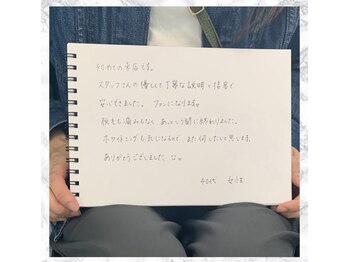 初めての来店です。
スタッフさんの優しくて丁寧な説明と接客で
安心できました。 ファンになります。
脱毛も痛みもなく あっという間に終わりました。
ホワイトニングも気になるので、また伺いたいと思います。
ありがとうございました
40代 女性